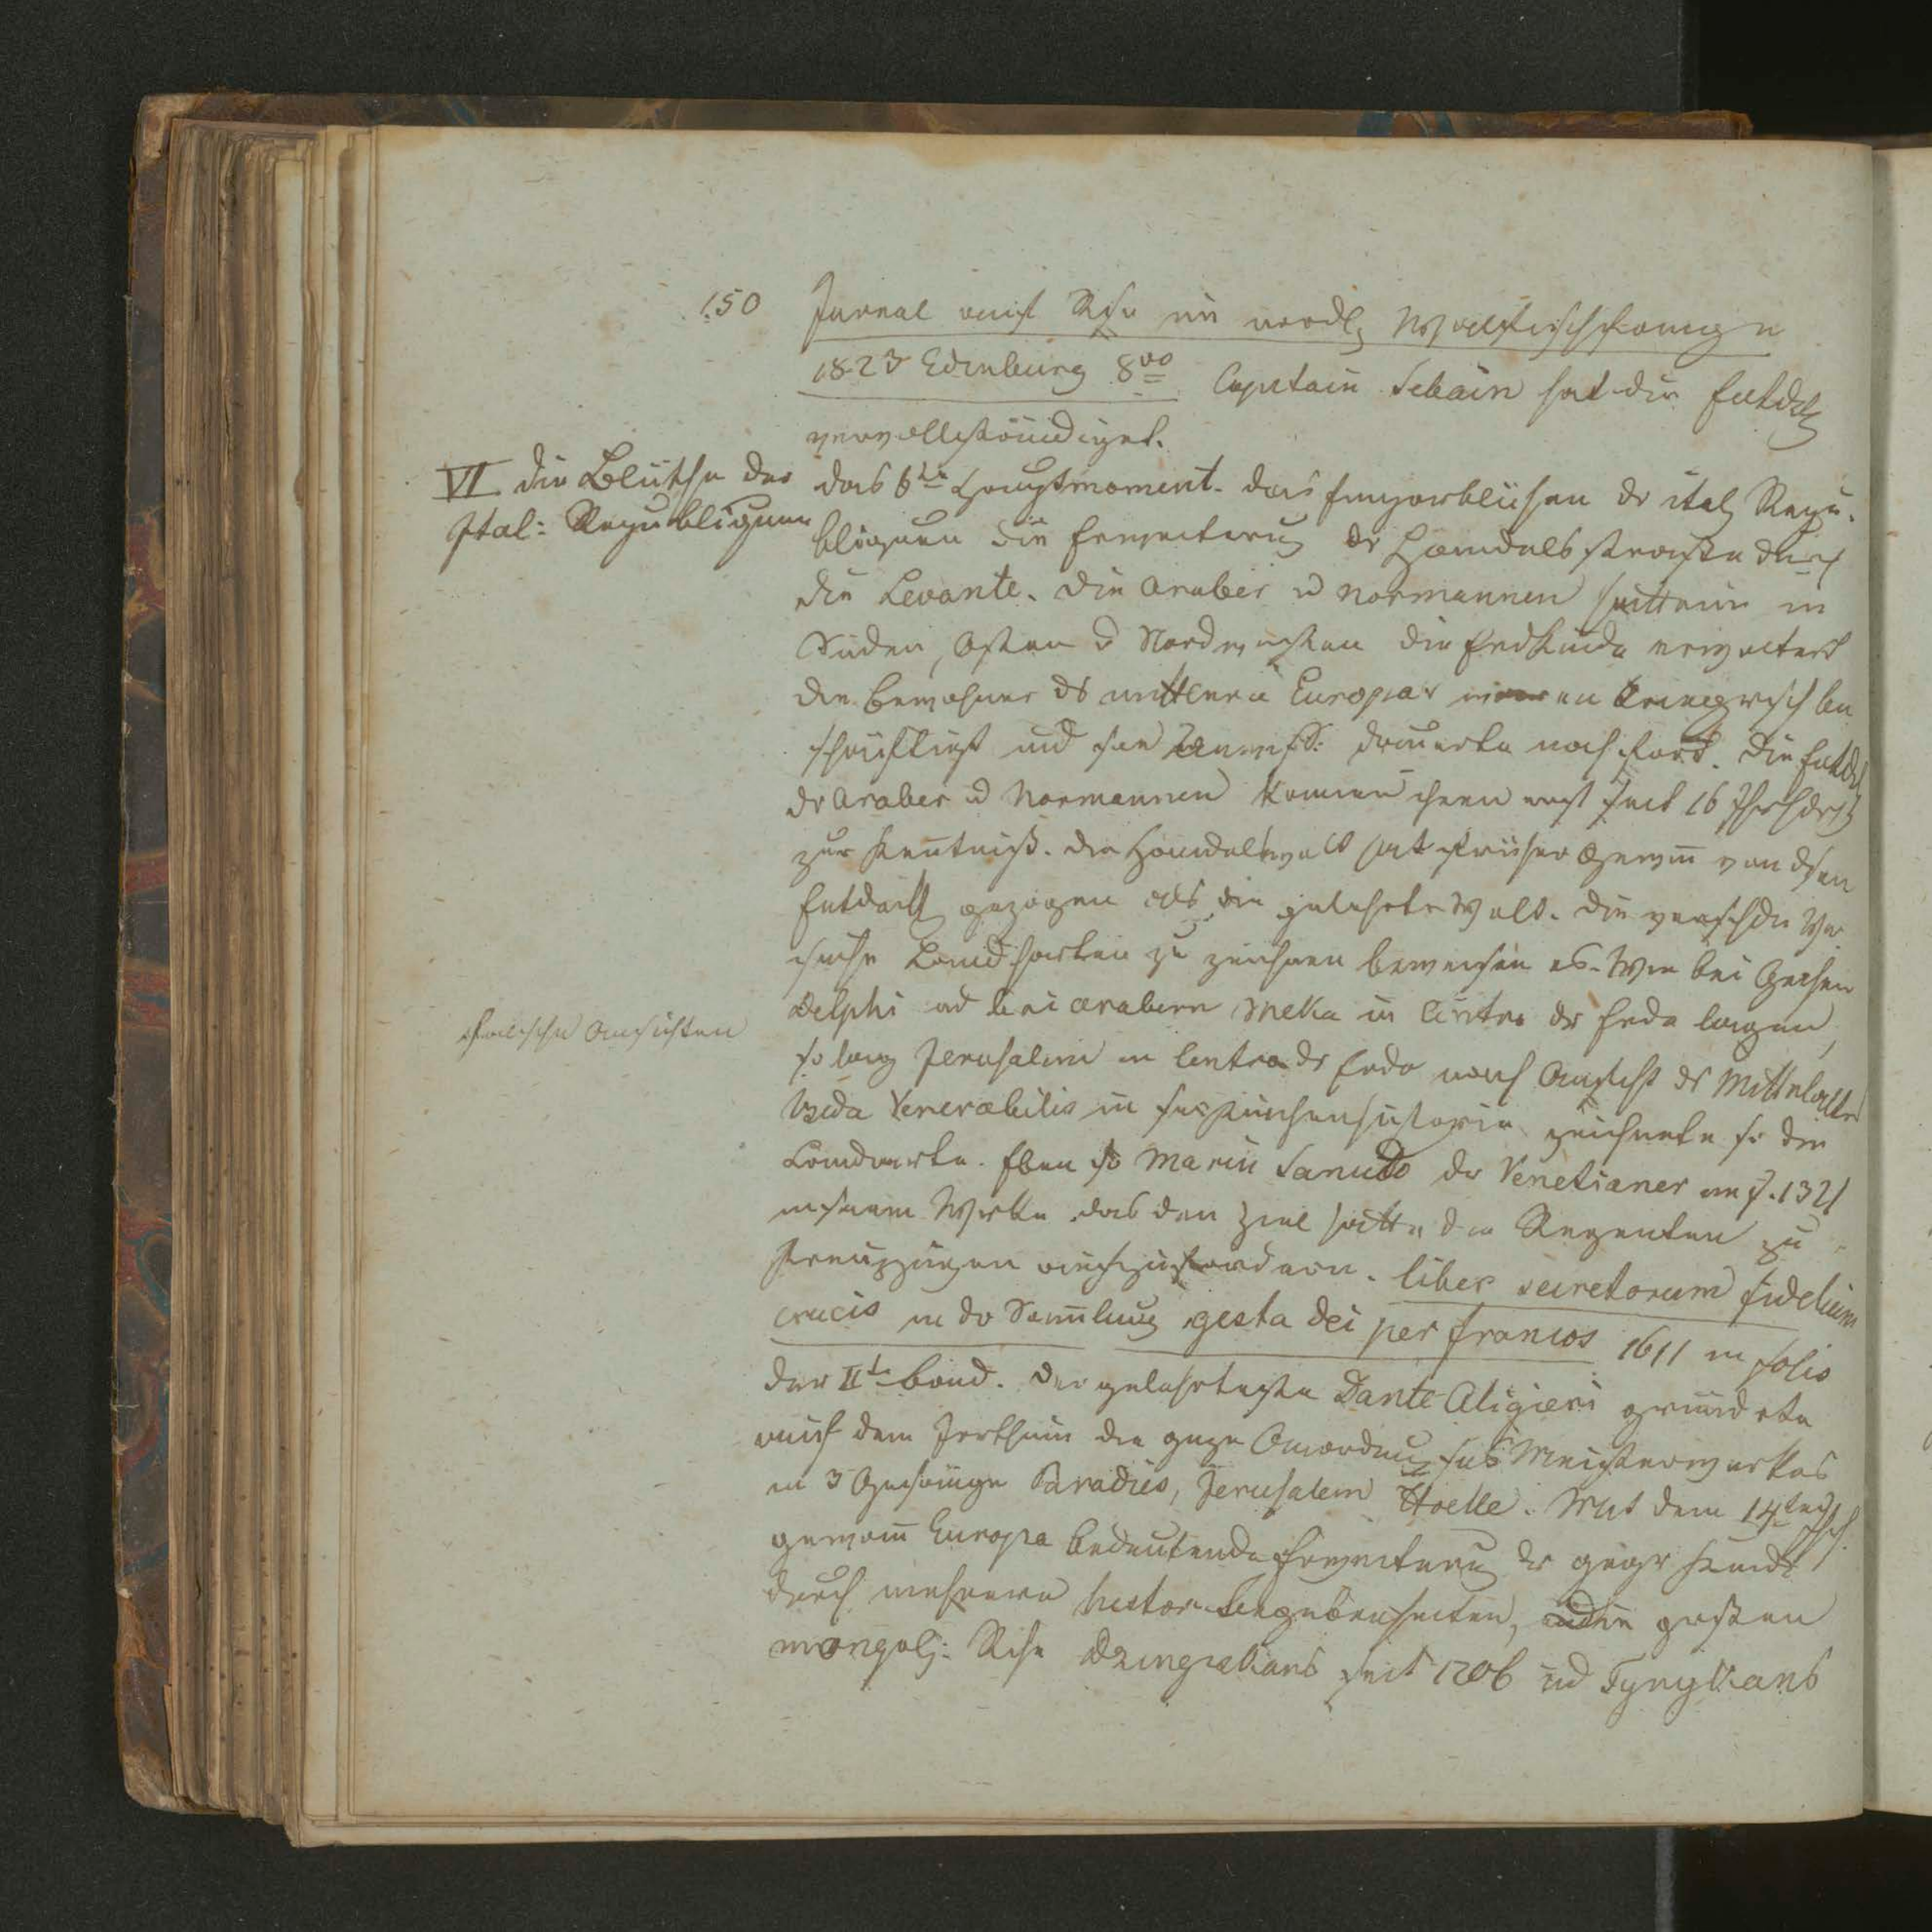 150
Jurnal auf Reise im nordl Wallfischfange
1823 Edinburg 8vo Capitain Sebain hat die Entdck
vervollständiget.
VI die Blüthe der
Ital: Republiquen
das 6te Hauptmoment. das Emporblühen dr ital Repu-
bliquen die Erweiterung dr Handelsstrasse durch
die Levante. Die Araber u Normannen hatten in
Süden, Osten u Nordwesten die Erdkunde erweitert
die Bewohner ds mittlern Europas waren kriegrisch be
schäftigt und dauerte noch fort. Die Entdck
dr Araber u Normannen kamen ihnen erst seit 16 Jhrhdrt
zur Kentniß. die Handelswelt hat früher Gewiñ von dsen
Entdeck gezogen als die gelehrte Welt. die verschdn Ver
suche Landkarten zu zeichnen beweisen es. Wie bei Griechen
Delphi ud bei Arabern Meka in Centro dr Erde lagen,
falsche Ansichten
so lag Jerusalem in Centro dr Erde nach Ansicht ds Mittelalters
Beda Venerabilis in sr Kirchenhistorie zeichnete so die
Landkarte. Eben so Marin Sanudo der Venetianer im J. 1321
in seinem Werke das den Ziel hatte die Regenten zu
Kreuzzügen aufzufordern. liber secretorum fidelium
crucis in dr Samlung gesta dei per francos 1611 in folio
der IIte Band. Der gelehrteste Dante Aligieri gründete
auf dem Irrthum die gnze Anordnung ss Meisterwerkes
in 3 Gesänge Paradies, Jerusalem Hoelle. Mit dem 14ten Jhh.
gewañ Europa bedeutende Erweiterung dr geogr Kunde
durch mehrere histor Begebenheiten, die grossen
mongol: Rche Dzingiskans seit 1206 ud